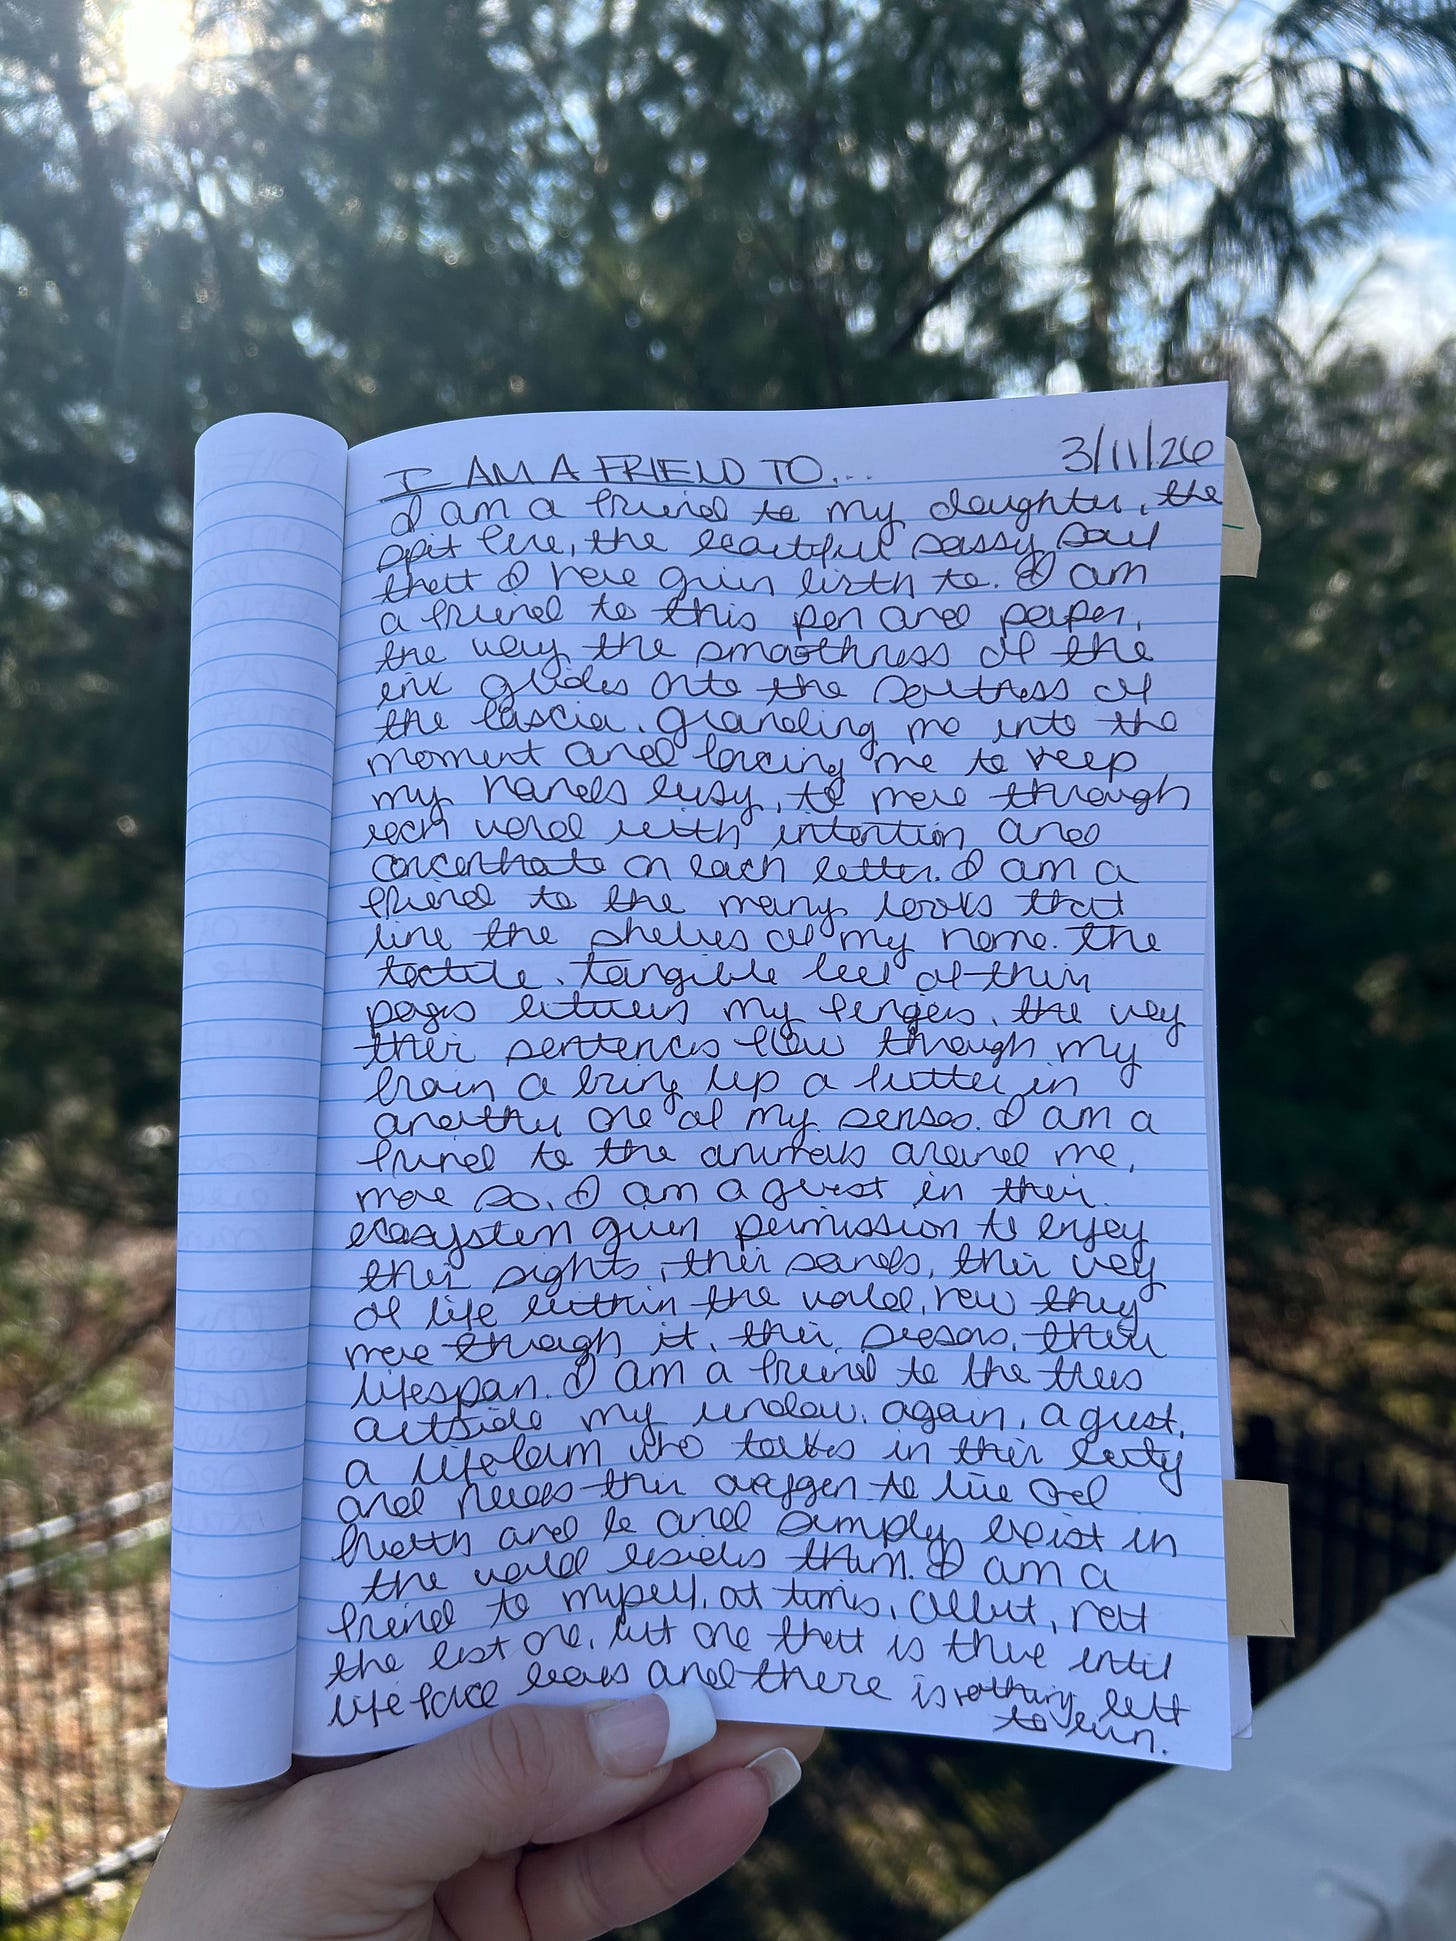 I AM A FRIEND TO...
3/11/26
I am a friend to my daughter, the
spit fire, the beautiful sassy soul
that I have given birth to. I am
a friend to this pen and paper,
the way the smoothness of the
ink glides onto the softness of
the fascia, grounding me into the
moment and forcing me to keep
my hands busy, to move through
each word with intention and
concentrate on each letter. I am a
friend to the many books that
line the shelves of my home. The
tactile, tangible feel of their
pages between my fingers, the way
their sentences flow through my
brain a bring up a flutter in
another one of my senses. I am a
friend to the animals around me,
more so, I am a guest in their
ecosystem given permission to enjoy
their sights, their sounds, their way
of life within the world, how they
move through it, their seasons, their
lifespan. I am a friend to the trees
outside my window, again, a guest,
a lifeform who takes in their beauty
and needs their oxygen to live and
breath and be and simply exist in
the world besides them. I am a
friend to myself, at times, albeit, not
the best one, but one that is there until
life force leaves and there is nothing left
to burn.